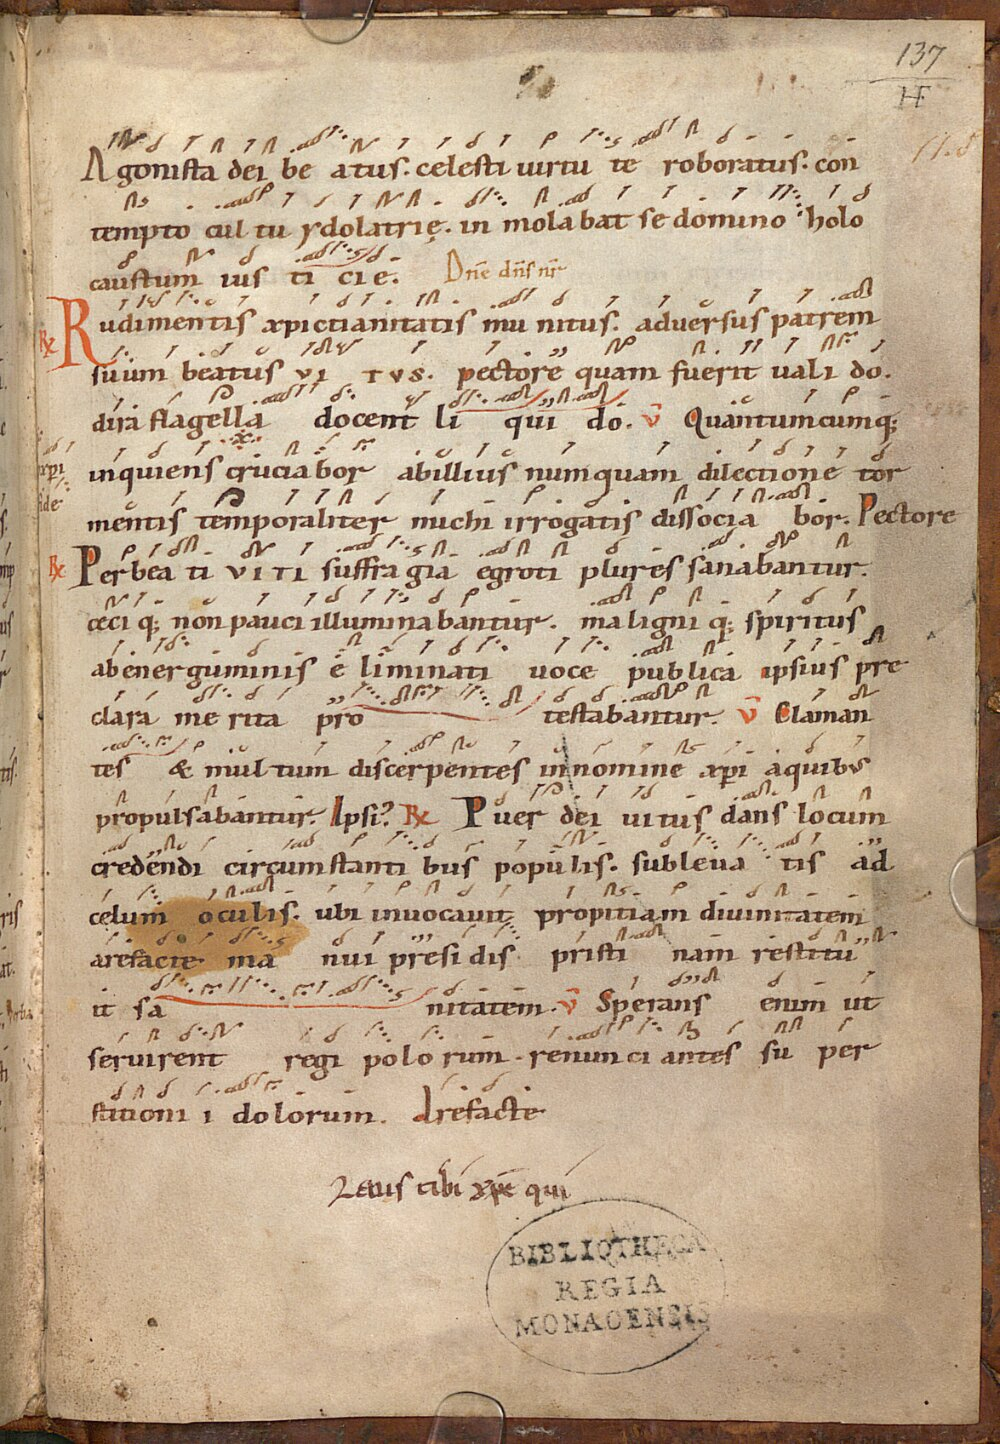 137
H
Agonista dei be atus. celesti uirtu te roboratus. con
tempto cul tu ydolatrię. in mola bat se domino holo
caustum ius ti cie. Dne dns nr
R Rudimentis xpictianitatis mu nitus. aduersus patrem
suum beatus VI TVS. pectore quam fuerit uali do.
dira flagella docent li qui do. V Quantumcumq;
inquiens crucia bor ab illius numquam dilectione tor
xpi
fide
mentis temporaliter michi irrogatis dissocia bor. Pectore
R Per bea ti VITI suffra gia egroti plures sanabantur.
ceci q; non pauci illuminabantur. maligni q; spiritus
ab energuminis e liminati uoce publica ipsius pre
clara me rita pro testabantur. V Claman
tes & multum discerpentes in nomine xpi a quibus
propulsabantur. Ipsi? R Puer dei uitus dans locum
credendi circumstanti bus populis. subleua tis ad
celum oculis. ubi inuocauit propitiam diuinitatem
arefacte ma nui presi dis pristi nam restitu
it sa nitatem. V Sperans enim ut
seruirent regi polo rum. renun ci antes su per
stitioni i dolorum. Arefacte
Laus tibi xpe qui
BIBLIOTHECA
REGIA
MONACENSIS